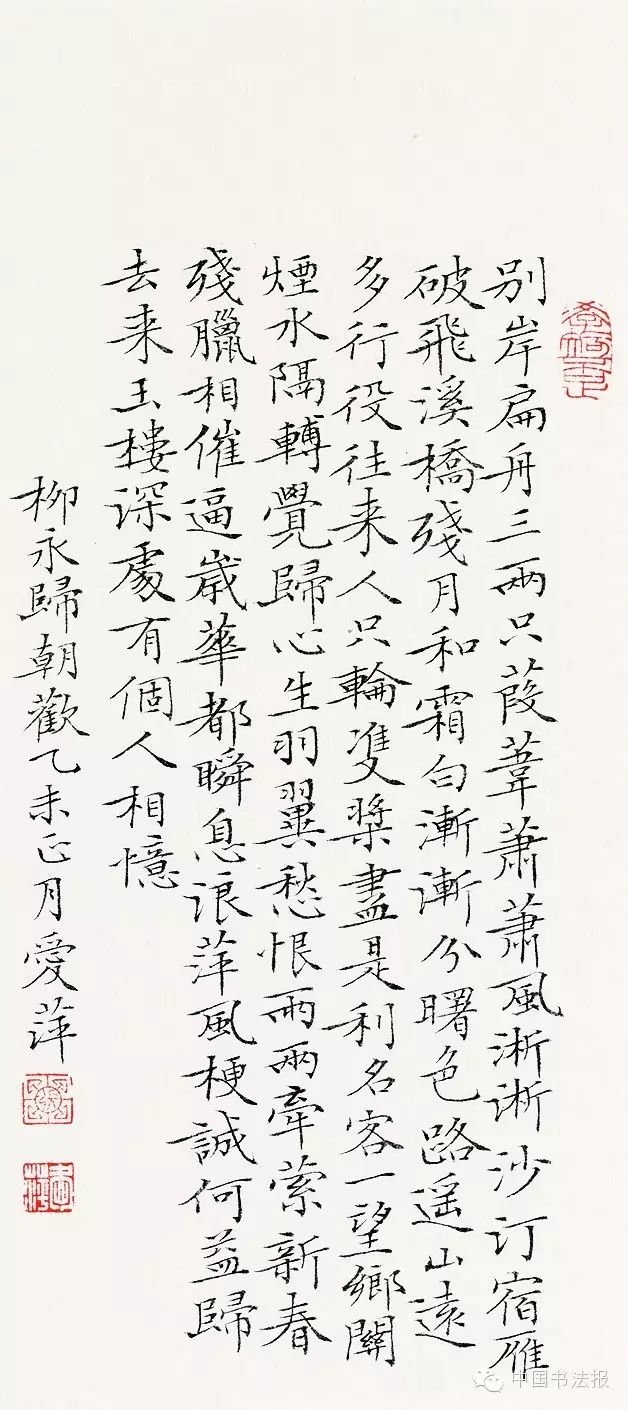 别岸扁舟三兩只葭葦蕭蕭風淅淅沙汀宿雁
破飛溪橋殘月和霜白漸漸分曙色路遥山遠
多行役往来人只輪雙槳盡是利名客一望鄉關
煙水隔轉覺歸心生羽翼愁恨兩兩牽縈新春
殘臘相催逼歲華都瞬息浪萍風梗誠何益歸
去来玉樓深處有個人相憶
柳永歸朝歡乙未正月愛萍
中国书法报